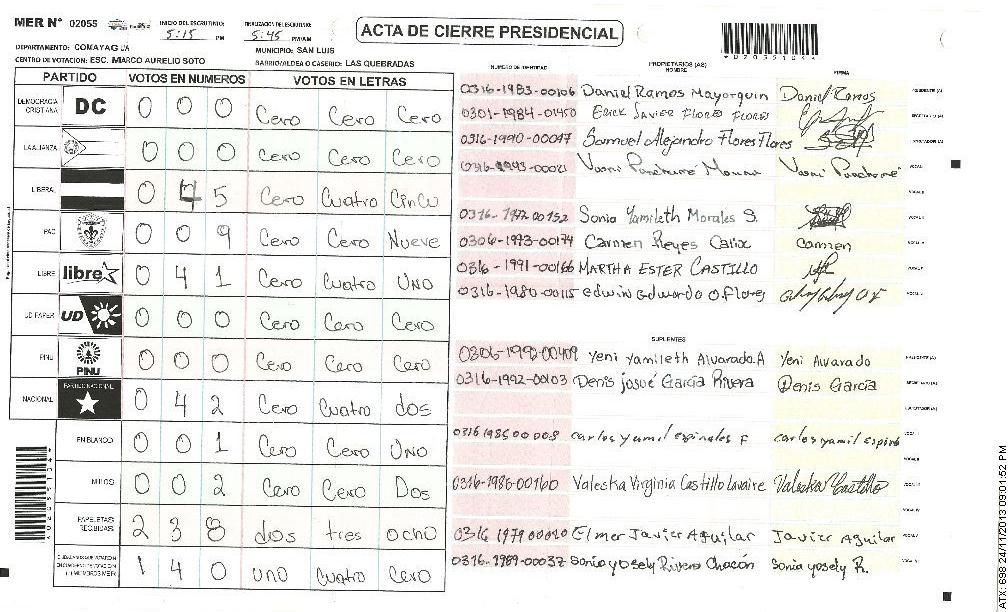 MER N° 02055
INICIO DEL ESCRUTINIO: 5:15 PM
FINALIZACION DEL ESCRUTINIO: 5:45 PM/AM
ACTA DE CIERRE PRESIDENCIAL
DEPARTAMENTO: COMAYAGUA
MUNICIPIO: SAN LUIS
CENTRO DE VOTACION: ESC. MARCO AURELIO SOTO
BARRIO/ALDEA O CASERIO: LAS QUEBRADAS
PARTIDO VOTOS EN NUMEROS VOTOS EN LETRAS
DEMOCRACIA CRISTIANA DC 0 0 0 Cero Cero Cero
LA ALIANZA 0 0 0 Cero Cero Cero
LIBERAL 0 4 5 Cero Cuatro Cinco
PAC 0 0 9 Cero Cero Nueve
LIBRE libre 0 4 1 Cero Cuatro Uno
UD FAPER UD 0 0 0 Cero Cero Cero
PINU PINU 0 0 0 Cero Cero Cero
NACIONAL PARTIDO NACIONAL 0 4 2 Cero Cuatro dos
EN BLANCO 0 0 1 Cero Cero Uno
NULOS 0 0 2 Cero Cero Dos
PAPELETAS RECIBIDAS 2 3 8 dos tres ocho
1 4 0 uno cuatro Cero
NUMERO DE IDENTIDAD PROPIETARIOS (AS) NOMBRE FIRMA
0316-1983-00106 Daniel Ramos Mayorquin Daniel Ramos PRESIDENTE (A)
0301-1984-01450 Erick Javier Flores Flores SECRETARIO (A)
0316-1990-00047 Samuel Alejandro Flores Flores ESCRUTADOR (A)
VOCAL I
VOCAL II
0316-1972-00152 Sonia Yamileth Morales S. VOCAL III
0306-1993-00174 Carmen Reyes Calix Carmen VOCAL IV
0316-1991-00166 MARTHA ESTER CASTILLO VOCAL V
0316-1980-00115 edwin edwardo O. flores
SUPLENTES
0306-1992-00409 Yeni Yamileth Alvarado A Yeni Alvarado PRESIDENTE (A)
0316-1992-00103 Denis josué García Rivera Denis García SECRETARIO (A)
ESCRUTADOR (A)
carlos yamil espinales F carlos yamil VOCAL I
VOCAL II
0316-1986-00160 Valeska Virginia Castillo Lavaire Valeska Castillo VOCAL III
VOCAL IV
0316 1979 00020 Elmer Javier Aguilar Javier Aguilar VOCAL V
0316-1989-00037 Sonia yosely Rivera Chacón Sonia yosely R.
ATX: 698 24/11/2013 09:01:52 PM